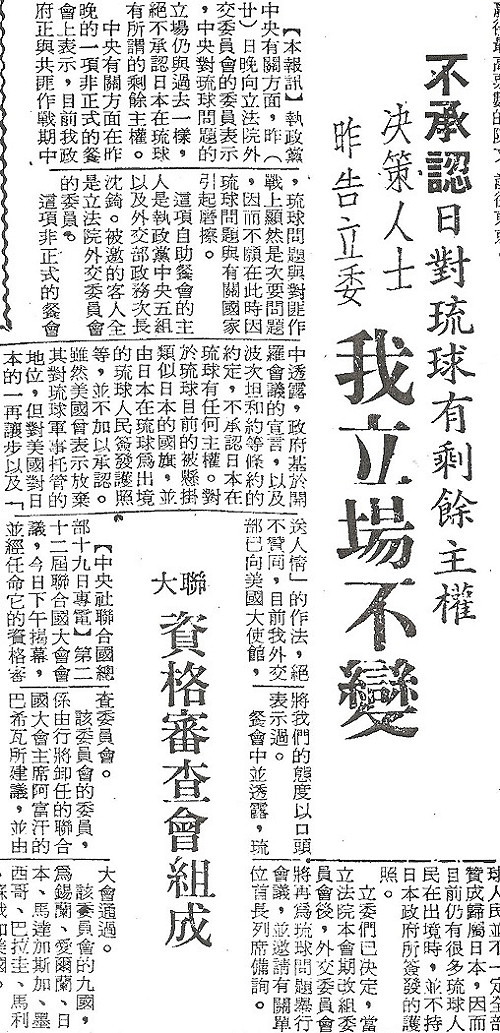 不承認日對琉球有剩餘主權
決策人士
昨告立委
我立場不變
【本報訊】執政黨
中央有關方面，昨（
廿）日晚向立法院外
交委員會的委員表示
，中央對琉球問題的
立場仍與過去一樣，
絕不承認日本在琉球
有所謂的剩餘主權。
中央有關方面在昨
晚的一項非正式的餐
會上表示，目前我政
府正與共匪作戰期中
，琉球問題與對匪作
戰上顯然是次要問題
，因而不願在此時因
琉球問題與有關國家
引起磨擦。
這項自助餐會的主
人是執政黨中央五組
以及外交部政務次長
沈錡。被邀的客人全
是立法院外交委員會
的委員。
這項非正式的餐會
中透露，政府基於開
羅會議的宣言，以及
波次坦和約等條約的
約定，不承認日本在
琉球有任何主權。對
於琉球目前的被懸掛
類似日本的國旗，並
由日本在琉球爲出境
的琉球人民簽發護照
等，並不加以承認。
雖然美國曾表示放棄
其對琉球軍事托管的
地位，但對美國對日
本的一再讓步以及「
送人情」的作法，絕
不贊同，目前我外交
部已向美國大使館，
將我們的態度以口頭
表示過。
餐會中並透露，琉
球人民並不一定全部
贊成歸屬日本，因而
目前仍有很多琉球人
民在出境時，並不持
日本政府所簽發的護
照。
立委們已決定，當
立法院本會期改組委
員會後，外交委員會
將再爲琉球問題舉行
會議，並邀請有關單
位首長列席備詢。
聯大
資格審查會組成
【中央社聯合國總
部十九日專電】第二
十二屆聯合國大會會
議，今日下午揭幕，
並經任命它的資格審
查委員會。
該委員會的委員，
係由行將卸任的聯合
國大會主席阿富汗的
巴希瓦所建議，並由
大會通過。
該委員會的九國，
爲錫蘭、愛爾蘭、日
本、馬達加斯加、墨
西哥、巴拉圭、馬利